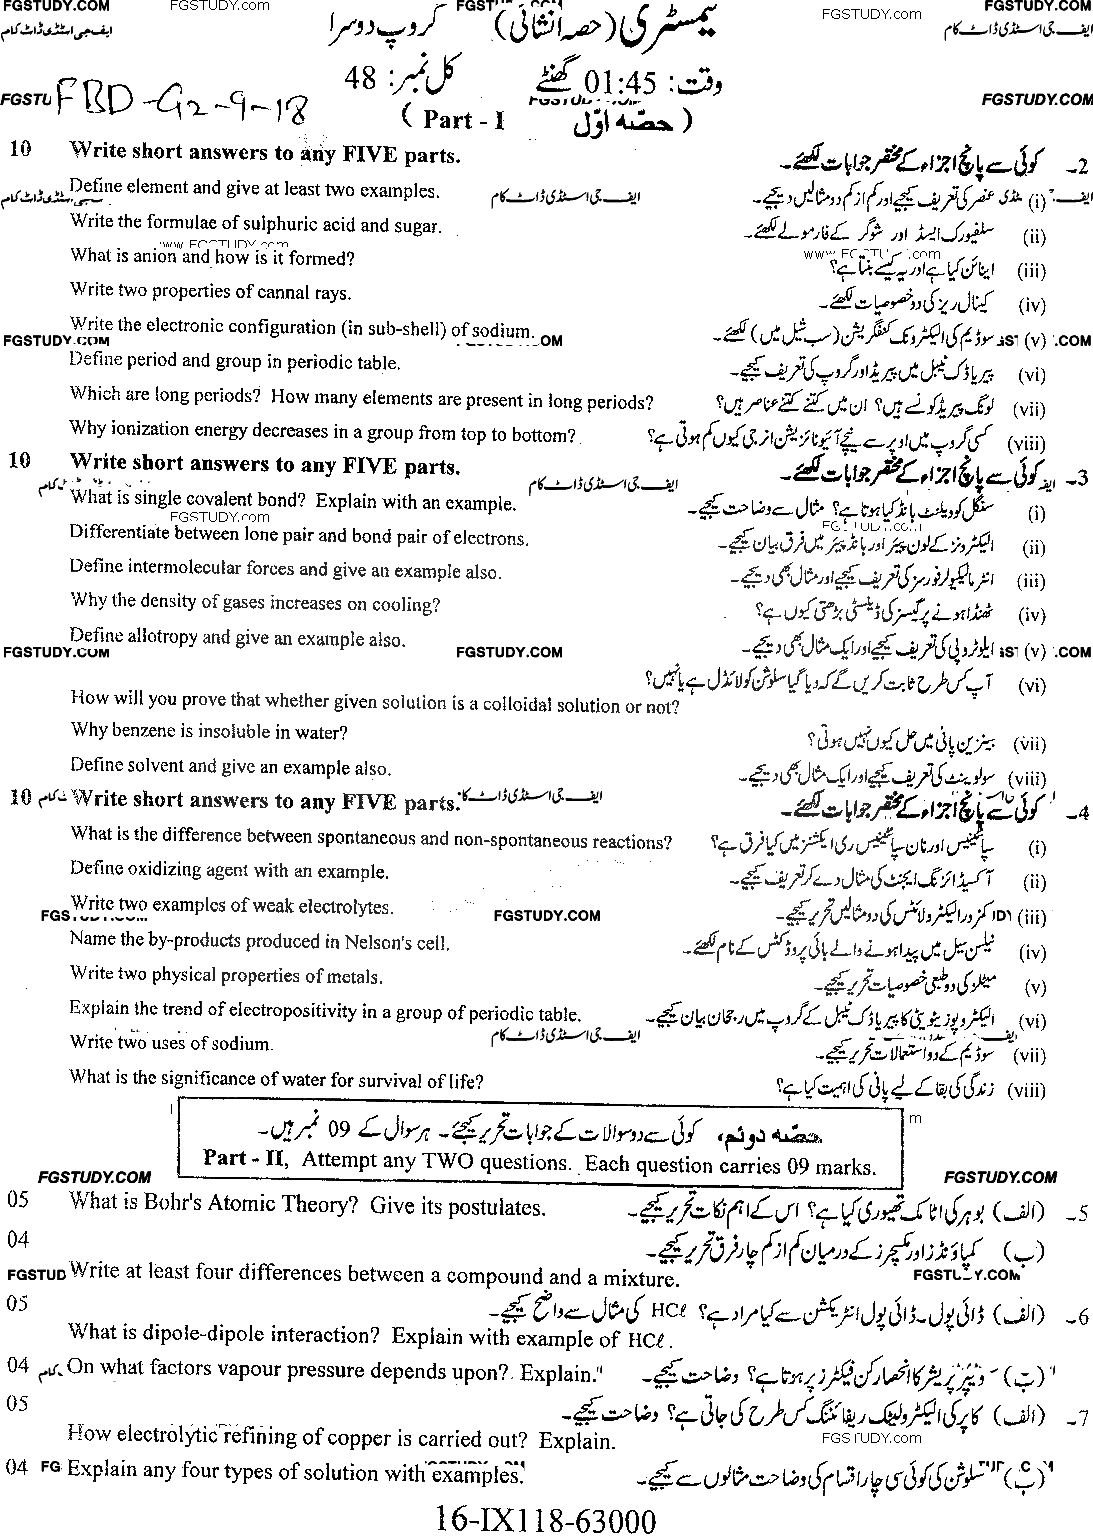 FGSTUDY.COM FGSTUDY.com FGSTUDY.com FGSTUDY.COM
ایف جی اسٹڈی ڈاٹ کام کیمسٹری (حصہ انشائی) گروپ دوسرا ایف جی اسٹڈی ڈاٹ کام
وقت: 01:45 گھنٹے کل نمبر: 48
FBD-G2-9-18 FGSTUDY.COM
(Part - I حصّہ اوّل)
10 Write short answers to any FIVE parts. 2۔ کوئی سے پانچ اجزاء کے مختصر جوابات لکھئے۔
Define element and give at least two examples. ایف جی اسٹڈی ڈاٹ کام (i) عنصر کی تعریف کیجیے اور کم از کم دو مثالیں دیجیے۔
Write the formulae of sulphuric acid and sugar. (ii) سلفیورک ایسڈ اور شوگر کے فارمولے لکھئے۔
www.FGSTUDY.com
What is anion and how is it formed? (iii) اینائن کیا ہے اور یہ کیسے بنتا ہے؟
Write two properties of cannal rays. (iv) کینال ریز کی دو خصوصیات لکھئے۔
Write the electronic configuration (in sub-shell) of sodium. (v) سوڈیم کی الیکٹرونک کنفگریشن (سب شیل میں) لکھئے۔
FGSTUDY.COM
Define period and group in periodic table. (vi) پیریاڈک ٹیبل میں پیریڈ اور گروپ کی تعریف کیجیے۔
Which are long periods? How many elements are present in long periods? (vii) لونگ پیریڈ کونسے ہیں؟ ان میں کتنے کتنے عناصر ہیں؟
Why ionization energy decreases in a group from top to bottom? (viii) کسی گروپ میں اوپر سے نیچے آئیونائزیشن انرجی کیوں کم ہوتی ہے؟
10 Write short answers to any FIVE parts. 3۔ کوئی سے پانچ اجزاء کے مختصر جوابات لکھئے۔
ایف جی اسٹڈی ڈاٹ کام
What is single covalent bond? Explain with an example. (i) سنگل کوویلنٹ بانڈ کیا ہوتا ہے؟ مثال سے وضاحت کیجیے۔
FGSTUDY.com
Differentiate between lone pair and bond pair of electrons. (ii) الیکٹرونز کے لون پیئر اور بانڈ پیئر میں فرق بیان کیجیے۔
Define intermolecular forces and give an example also. (iii) انٹر مالیکیولر فورسز کی تعریف کیجیے اور مثال بھی دیجیے۔
Why the density of gases increases on cooling? (iv) ٹھنڈا ہونے پر گیسز کی ڈینسٹی بڑھتی کیوں ہے؟
Define allotropy and give an example also. (v) ایلوٹروپی کی تعریف کیجیے اور ایک مثال بھی دیجیے۔
FGSTUDY.COM FGSTUDY.COM
(vi) آپ کس طرح ثابت کریں گے کہ دیا گیا سلوشن کولائڈل ہے یا نہیں؟
How will you prove that whether given solution is a colloidal solution or not?
Why benzene is insoluble in water? (vii) بینزین پانی میں حل کیوں نہیں ہوتی؟
Define solvent and give an example also. (viii) سولوینٹ کی تعریف کیجیے اور ایک مثال بھی دیجیے۔
10 Write short answers to any FIVE parts. ایف جی اسٹڈی ڈاٹ کام 4۔ کوئی سے پانچ اجزاء کے مختصر جوابات لکھئے۔
What is the difference between spontaneous and non-spontaneous reactions? (i) سپانٹینیس اور نان سپانٹینیس ری ایکشنز میں کیا فرق ہے؟
Define oxidizing agent with an example. (ii) آکسیڈائزنگ ایجنٹ کی مثال دے کر تعریف کیجیے۔
Write two examples of weak electrolytes. (iii) کمزور الیکٹرولائٹس کی دو مثالیں تحریر کیجیے۔
FGSTUDY.COM FGSTUDY.COM
Name the by-products produced in Nelson's cell. (iv) نیلسن سیل میں پیدا ہونے والے بائی پروڈکٹس کے نام لکھئے۔
Write two physical properties of metals. (v) میٹلز کی دو طبعی خصوصیات تحریر کیجیے۔
Explain the trend of electropositivity in a group of periodic table. (vi) الیکٹروپوزیٹویٹی کا پیریاڈک ٹیبل کے گروپ میں رجحان بیان کیجیے۔
Write two uses of sodium. ایف جی اسٹڈی ڈاٹ کام (vii) سوڈیم کے دو استعمالات تحریر کیجیے۔
What is the significance of water for survival of life? (viii) زندگی کی بقا کے لیے پانی کی اہمیت کیا ہے؟
حصّہ دوئم، کوئی سے دو سوالات کے جوابات تحریر کیجئے۔ ہر سوال کے 09 نمبر ہیں۔
Part - II, Attempt any TWO questions. Each question carries 09 marks.
FGSTUDY.COM FGSTUDY.COM
05 What is Bohr's Atomic Theory? Give its postulates. 5۔ (الف) بوہر کی اٹامک تھیوری کیا ہے؟ اس کے اہم نکات تحریر کیجیے۔
04 (ب) کمپاؤنڈز اور مکسچرز کے درمیان کم از کم چار فرق تحریر کیجیے۔
Write at least four differences between a compound and a mixture. FGSTUDY.COM
05 6۔ (الف) ڈائی پول۔ڈائی پول انٹریکشن سے کیا مراد ہے؟ HCℓ کی مثال سے واضح کیجیے۔
What is dipole-dipole interaction? Explain with example of HCℓ.
04 On what factors vapour pressure depends upon? Explain. (ب) ویپر پریشر کا انحصار کن فیکٹرز پر ہوتا ہے؟ وضاحت کیجیے۔
05 7۔ (الف) کاپر کی الیکٹرولیٹک ریفائننگ کس طرح کی جاتی ہے؟ وضاحت کیجیے۔
How electrolytic refining of copper is carried out? Explain. FGSTUDY.com
04 Explain any four types of solution with examples. (ب) سلوشن کی کوئی سی چار اقسام کی وضاحت مثالوں سے کیجیے۔
16-IX118-63000